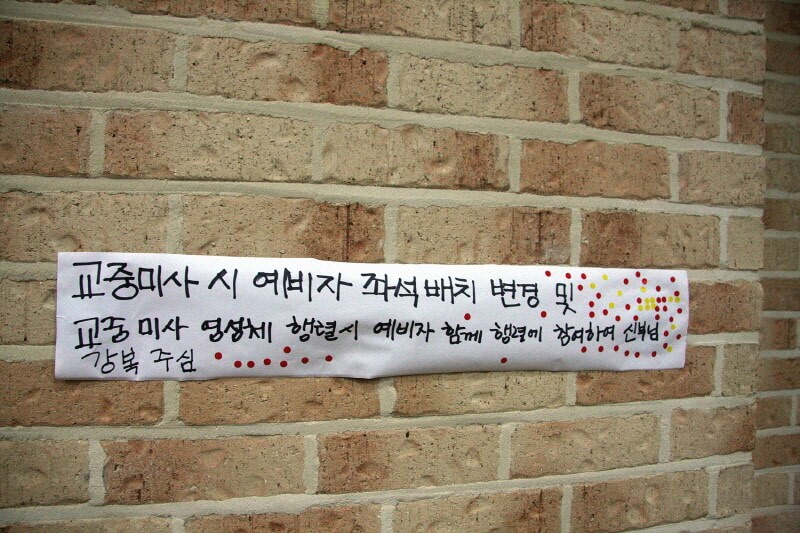 교중미사 시 예비자 좌석배치 변경 및
교중 미사 영성체 행렬시 예비자 함께 행렬에 참여하여 신부님
강복 주심